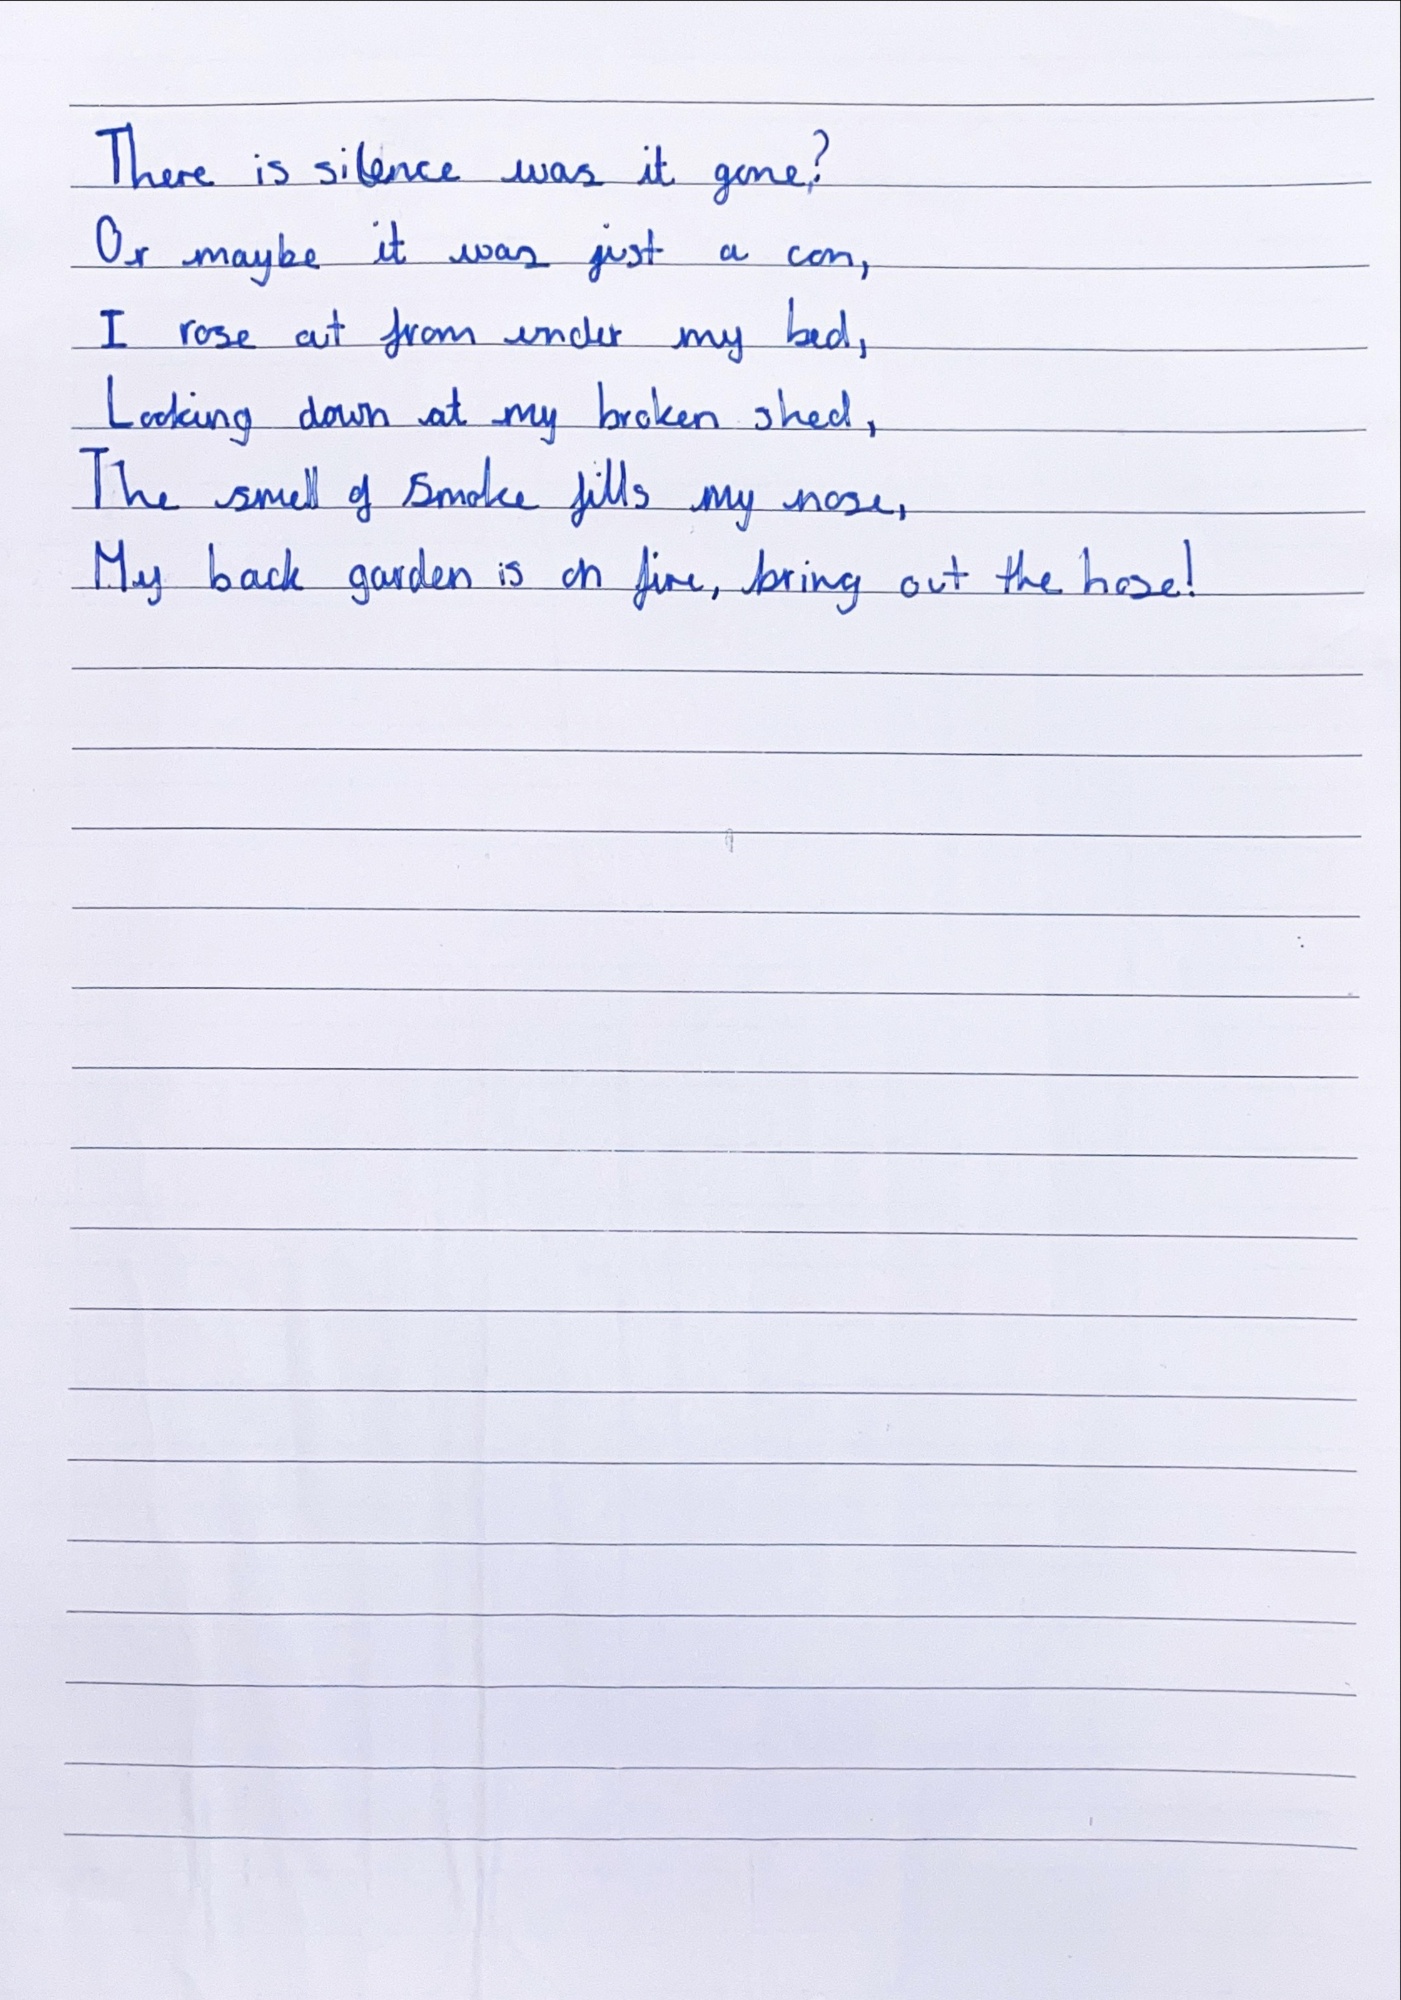 There is silence was it gone?
Or maybe it was just a con,
I rose out from under my bed,
Looking down at my broken shed,
The smell of smoke fills my nose,
My back garden is on fire, bring out the hose!